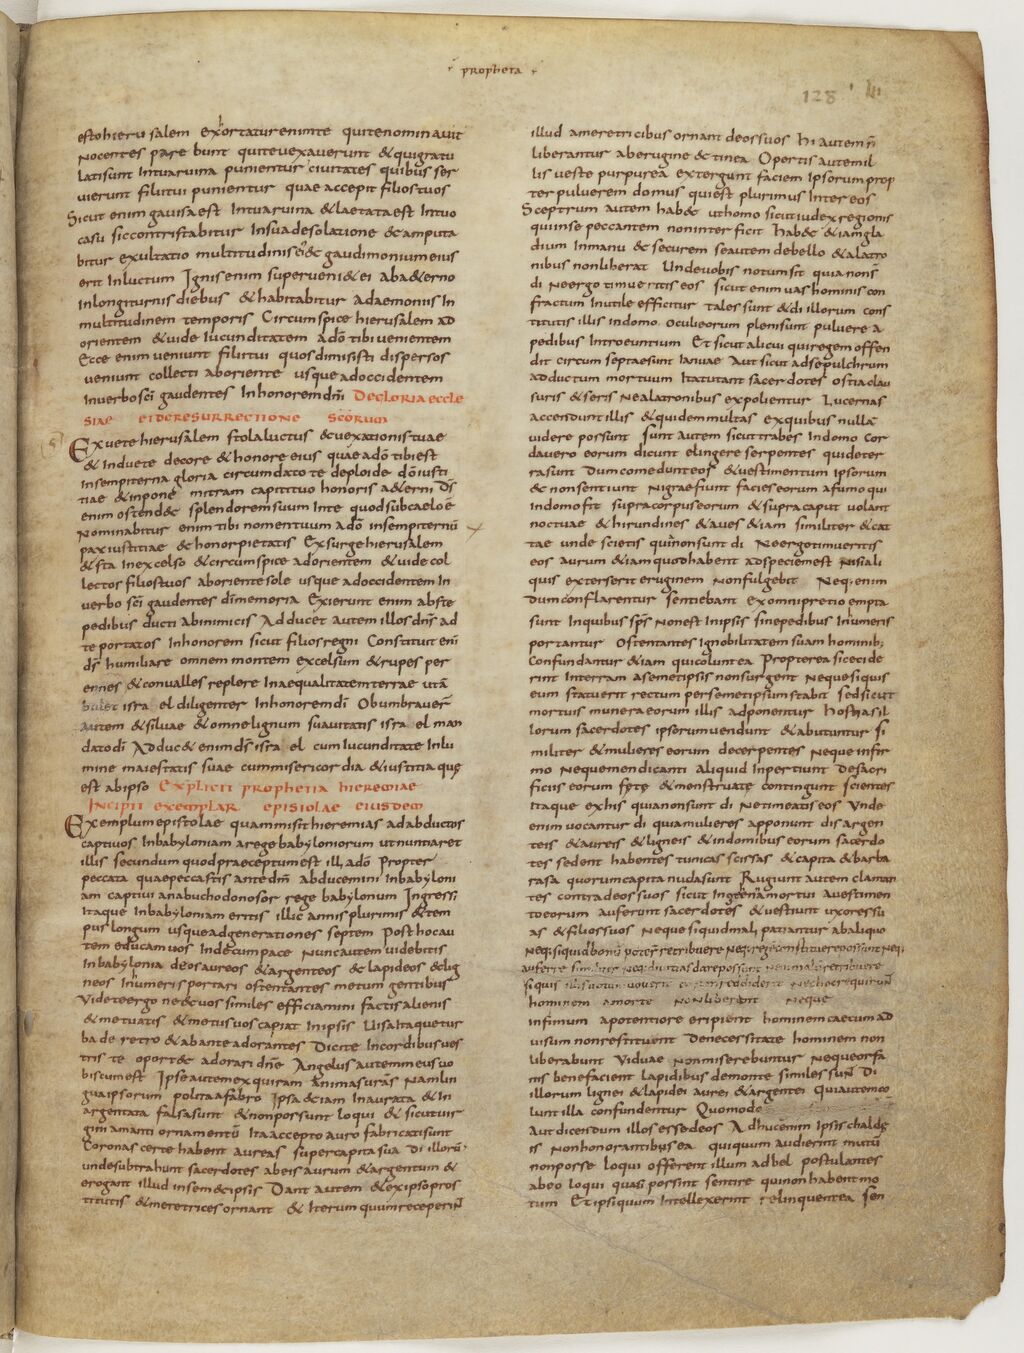 propheta
128
esto hierusalem exortatur enim te qui te nominavit
Nocentes pare bunt qui te vexaverunt & qui gratu
latisunt Intuaruina punientur civitates quibus ser
vierunt filii tui punientur quae accepit filios tuos
Sicut enim gavisa est Intuaruina & laetata est Intuo
casu sic contristabitur Insua desolatione & amputa
bitur exultatio multitudinis ei & gaudimonium eius
erit Inluctum Ignis enim superveni & ei aba&erno
Inlongiturnis diebus & habitabitur a daemoniis In
multitudinem temporis Circumspice hierusalem ad
orientem & vide Iucunditatem a dō tibi venientem
Ecce enim veniunt filii tui quos dimisisti dispersos
veniunt collecti aboriente usque adoccidentem
Inverbo sci gaudentes Inhonorem dni De gloria eccle
siae et de resurrectione scōrum
Exuete hierusalem stola luctus & vexationis tuae
& Induete decore & honore eius quae a dō tibi est
Insempiterna gloria circumdato te deploide dō iusti
tiae & inpone mitram capiti tuo honoris a&erni Ds
enim ostend& splendorem suum Inte quod sub caelo ē
Nominabitur enim tibi nomen tuum a dō Insempiternū
pax iustitiae & honor pietatis Exsurge hierusalem
& sta Inexcelso & circumspice adorientem & vide col
lectos filios tuos aboriente sole usque adoccidentem In
verbo sci gaudentes dī memoria Exierunt enim abs te
pedibus ducti abinimicis Adducet autem illos dns ad
te portatos Inhonorem sicut filios regni Constituit enī
ds humiliare omnem montem excelsum & rupes per
ennes & convalles replere Inaequalitatem terrae utā
bulet isra el diligenter Inhonorem di Obumbraver
autem & silvae & omne lignum suavitatis isra el man
dato di Adduc& enim ds isra el cum Iucunditate Inlu
mine maiestatis suae cum misericordia & iustitia quę
est abipso Explicit prophetia hieremiae
Incipit exemplar epistolae eiusdem
Exemplum epistolae quam misit hieremias ad abductos
captivos Inbabyloniam a rege babyloniorum ut nuntiaret
illis secundum quod praeceptum est ill, a dō Propter
peccata quae peccastis ante dm abducemini Inbabyloni
am captivi a nabuchodonosor rege babylonum Ingressi
Itaque Inbabyloniam eritis illic annis plurimis & tem
pus longum usque ad generationes septem Post hoc au
tem educam vos Inde cum pace Nunc autem videbitis
Inbabylonia deos aureos & argenteos & lapideos & lig
neos Inumeris portari ostentantes metum gentibus
Videte ergo ne & vos similes efficiamini factis alienis
& metuatis & metus vos capiat Inipsis Visa Itaque tur
ba de retro & ab ante adorantes Dicite Incordibus ves
tris te oport& adorari dne Angelus autem meus vo
biscum est Ipse autem exquiram animas uras Nam lin
gua ipsorum polita a fabro Ipsa &iam Inaurata & In
argentata falsa sunt & non possunt loqui & sicut vir
gini amanti ornamentū Ita accepto auro fabricati sunt
Coronas certe habent aureas super capita sua di illorū
unde subtrahunt sacerdotes ab eis aurum & argentum &
erogant illud in sem&ipsis Dant autem & ex ipso pros
titutis & meretrices ornant & Iterum quum receperīn
illud a meretricibus ornant deos suos hi autem n̄
liberantur ab erugine & tinea Opertis autem il
lis veste purpurea extergunt faciem Ipsorum prop
ter pulverem domus qui est plurimus Inter eos
Sceptrum autem hab& ut homo sicut iudex regionis
qui in se peccantem non interficit Hab& &iam gla
dium Inmanu & securem se autem de bello & a latro
nibus non liberat Unde vobis notum sit quia non s
di Ne ergo timueritis eos sicut enim vas hominis con
fractum Inutile efficitur tales sunt & di illorum cons
titutis illis Indomo oculi eorum pleni sunt pulvere a
pedibus Introeuntium Et sicut alicui qui regem offen
dit circumseptae sunt ianuae Aut sicut ad sepulchrum
adductum mortuum Ita tutant sacerdotes ostia clau
suris & seris Ne a latronibus expolientur Lucernas
accendunt illis & quidem multas ex quibus nullā
videre possunt Sunt autem sicut trabes Indomo cor
da vero eorum dicunt elingere serpentes qui de ter
ra sunt Dum comedunt eos & vestimentum ipsorum
& non sentiunt Nigrae fiunt facies eorum a fumo qui
Indomo fit supra corpus eorum & supra caput volant
noctuae & hirundines & aves &iam similiter & cat
tae unde scietis quia non sunt di Ne ergo timueritis
eos aurum &iam quod habent ad speciem est Nisi ali
quis exterserit eruginem Non fulgebit Neq; enim
dum conflarentur sentiebant Ex omni pretio empta
sunt Inquibus sps Non est Inipsis sine pedibus Inumeris
portantur Ostentantes Ignobilitatem suam hominib;
Confundantur &iam qui colunt ea Propterea si ceci de
rint Interram a semetipsis non surgent Neque si quis
eum statuerit rectum per semetipsum stabit sed sicut
mortuis munera eorum illis adponentur Hostias il
lorum sacerdotes ipsorum vendunt & abutuntur si
militer & mulieres eorum decerpentes Neque infir
mo Neque mendicanti Aliquid Inpertiunt De sacri
ficiis eorum fętę & menstruatę contingunt scientes
Itaque ex his quia non sunt di Ne timeatis eos Unde
enim vocantur di quia mulieres apponunt dis argen
teis & aureis & ligneis & indomibus eorum sacerdo
tes sedent habentes tunicas scissas & capita & barba
rasa quorum capita nuda sunt Rugiunt autem claman
tes contra deos suos sicut Incena mortui a vestimen
to eorum auferunt sacerdotes & vestiunt uxores su
as & filios suos Neque si quid mali patiantur ab aliquo
Neq; si quid boni poter retribuere Neq; rege constituere possunt Neq;
auferre similiter Neq; divitias dare possunt Neq; malū retribuere
si quis illis votum voverit et non reddiderit Neq; hoc requirun̄
hominem a morte Non liberent Neque
infimum a potentiore eripient hominem caecum ad
visum non restituent De necessitate hominem non
liberabunt Viduae Non miserebuntur Neque orfa
nis benefacient lapidibus de monte similes sun̄ Di
illorum lignei & lapidei aurei & argentei Qui autem co
lunt illa confundentur Quomodo
Aut dicendum illos esse deos Adhuc enim Ipsis chaldę
is Non honorantibus ea qui quum audierint mutū
non posse loqui offerent illum ad bel postulantes
ab eo loqui quasi possint sentire qui non habent mo
tum Et ipsi quum Intellexerint relinquent ea Sen